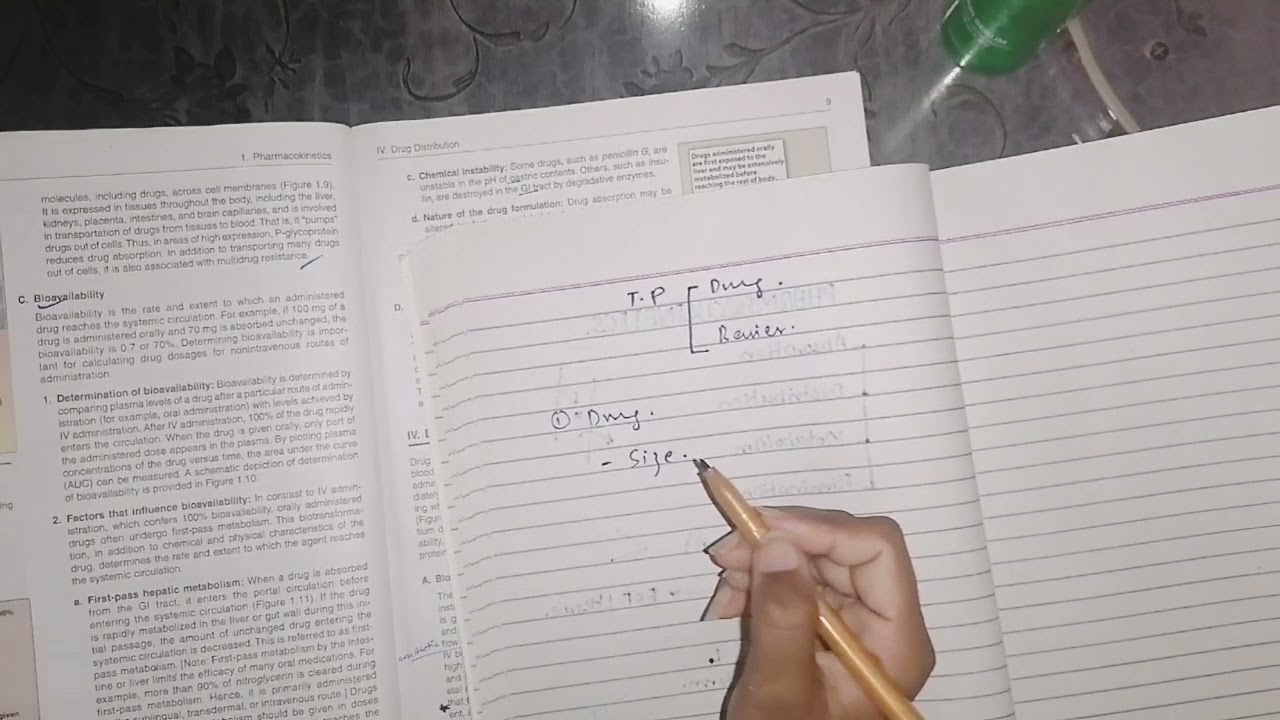 1. Pharmacokinetics
molecules, including drugs, across cell membranes (Figure 1.9).
It is expressed in tissues throughout the body, including the liver,
kidneys, placenta, intestines, and brain capillaries, and is involved
in transportation of drugs from tissues to blood. That is, it "pumps"
drugs out of cells. Thus, in areas of high expression, P-glycoprotein
reduces drug absorption. In addition to transporting many drugs
out of cells, it is also associated with multidrug resistance.
C. Bioavailability
Bioavailability is the rate and extent to which an administered
drug reaches the systemic circulation. For example, if 100 mg of a
drug is administered orally and 70 mg is absorbed unchanged, the
bioavailability is 0.7 or 70%. Determining bioavailability is impor-
tant for calculating drug dosages for nonintravenous routes of
administration.
1. Determination of bioavailability: Bioavailability is determined by
comparing plasma levels of a drug after a particular route of admin-
istration (for example, oral administration) with levels achieved by
IV administration. After IV administration, 100% of the drug rapidly
enters the circulation. When the drug is given orally, only part of
the administered dose appears in the plasma. By plotting plasma
concentrations of the drug versus time, the area under the curve
(AUC) can be measured. A schematic depiction of determination
of bioavailability is provided in Figure 1.10.
2. Factors that influence bioavailability: In contrast to IV admin-
istration, which confers 100% bioavailability, orally administered
drugs often undergo first-pass metabolism. This biotransforma-
tion, in addition to chemical and physical characteristics of the
drug, determines the rate and extent to which the agent reaches
the systemic circulation.
a. First-pass hepatic metabolism: When a drug is absorbed
from the GI tract, it enters the portal circulation before
entering the systemic circulation (Figure 1.11). If the drug
is rapidly metabolized in the liver or gut wall during this ini-
tial passage, the amount of unchanged drug entering the
systemic circulation is decreased. This is referred to as first-
pass metabolism. [Note: First-pass metabolism by the intes-
tine or liver limits the efficacy of many oral medications. For
example, more than 90% of nitroglycerin is cleared during
first-pass metabolism. Hence, it is primarily administered
sublingual, transdermal, or intravenous route.] Drugs
metabolism should be given in doses
reaches the
IV. Drug Distribution
9
c. Chemical instability: Some drugs, such as penicillin G, are
unstable in the pH of gastric contents. Others, such as insu-
lin, are destroyed in the GI tract by degradative enzymes.
d. Nature of the drug formulation: Drug absorption may be
Drugs administered orally
are first exposed to the
liver and may be extensively
metabolized before
reaching the rest of body.
D.
IV.
Drug
blood
A. Blo
The
T.P Drug.
Barrier.
① Drug.
- Size.